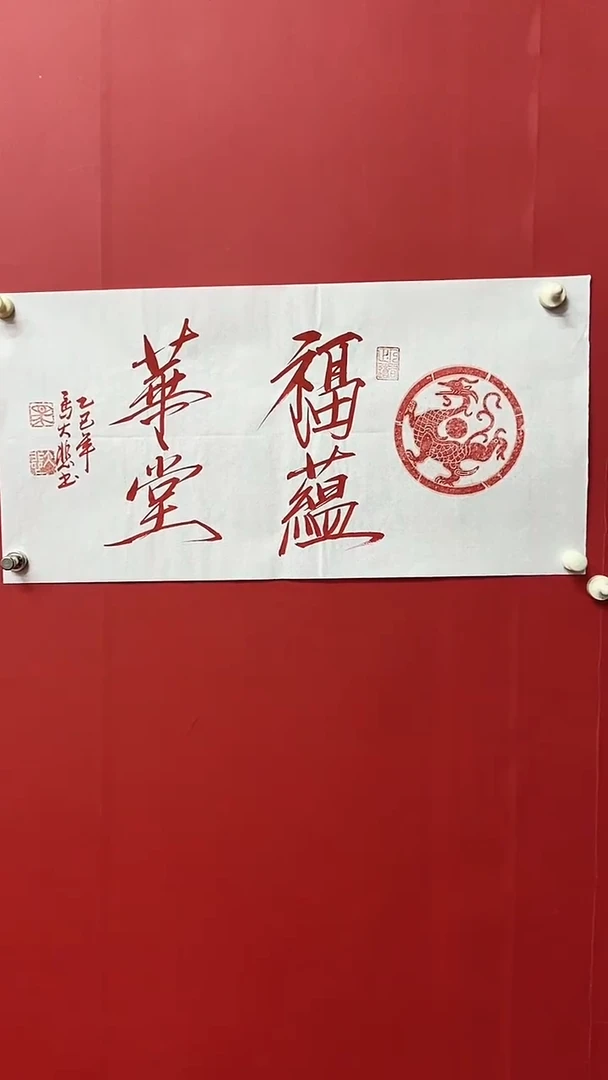 福蘊
華堂
乙巳年
馬大悲書